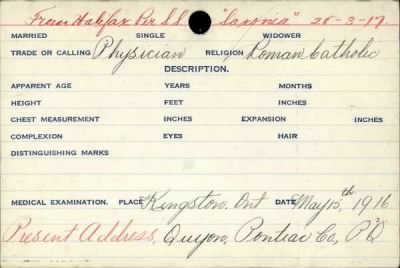 From Halifax Per S.S. "Saxonia" 28-3-17
MARRIED SINGLE WIDOWER
TRADE OR CALLING Physician RELIGION Roman Catholic
DESCRIPTION.
APPARENT AGE YEARS MONTHS
HEIGHT FEET INCHES
CHEST MEASUREMENT INCHES EXPANSION INCHES
COMPLEXION EYES HAIR
DISTINGUISHING MARKS
MEDICAL EXAMINATION. PLACE Kingston. Ont DATE May 15th 1916
Present Address, Quyon, Pontiac Co, P.Q